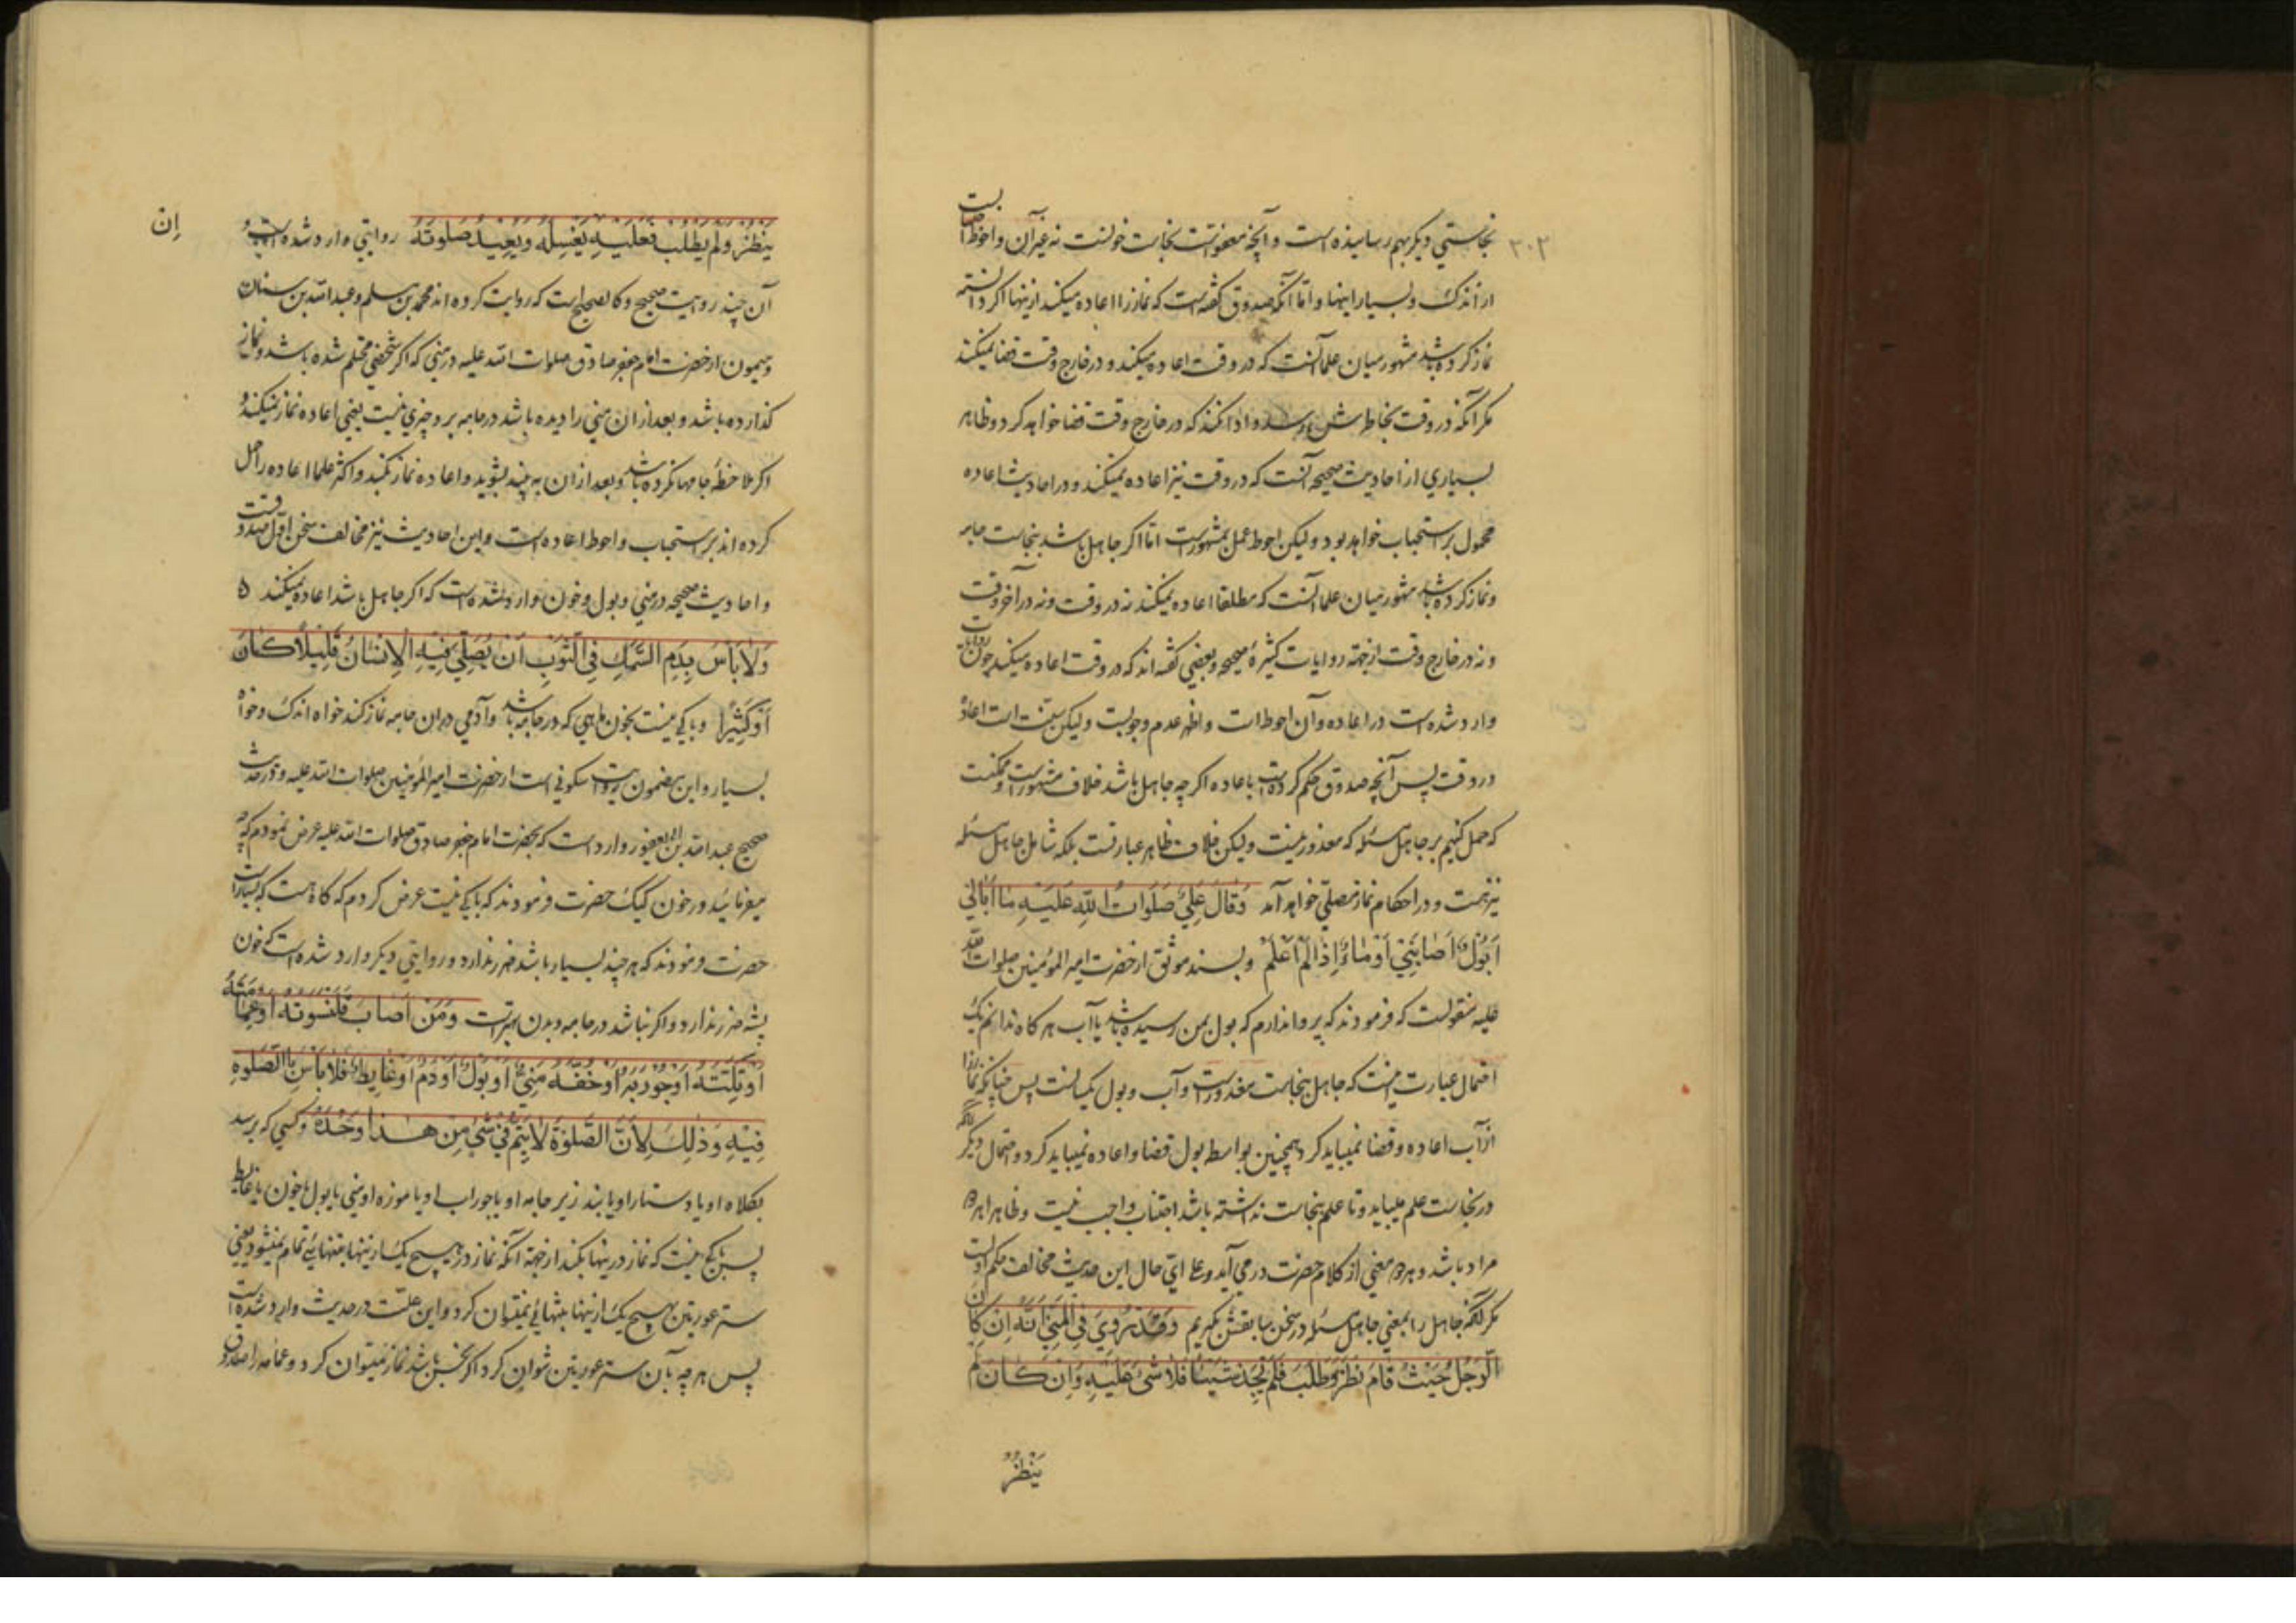 ۳۰۲
نجاستي ديكر بهم رسانيده است و آنچه معفوّاست نجاست خونست نه غير آن و احوط اجتنابست
از اندك و بسيار اينها و امّا آنكه صدوق كفته است كه نماز را اعاده ميكند ازينها اكر دانسته
نماز كرده باشد مشهور ميان علما آنست كه در وقت اعاده ميكند و در خارج وقت قضا نميكند
مكر آنكه در وقت بخاطرش رسد و ادا نكند كه در خارج وقت قضا خواهد كرد و ظاهر
بسياري از احاديث صحيحه آنست كه در وقت نيز اعاده نميكند و در احاديث اعاده
محمول بر استحباب خواهد بود و ليكن احوط عمل بمشهور است امّا اكر جاهل باشد بنجاست جامه
و نماز كرده باشد مشهور ميان علما آنست كه مطلقا اعاده نميكند نه در وقت و نه در آخر وقت
و نه در خارج وقت از جهة روايات كثيرۀ صحيحه و بعضي كفته اند كه در وقت اعاده ميكند چون روايات
وارد شده است در اعاده و آن احوط است و اظهر عدم وجوبست و ليكن سنّت است اعادۀ
در وقت پس آنچه صدوق حكم كرده است باعاده اكر چه جاهل باشد خلاف مشهور است و ممكنست
كه حمل كنيم بر جاهل مسئله كه معذور نيست و ليكن خلاف ظاهر عبارتست بلكه شامل جاهل مسئله
نيز هست و در احكام نماز مصلّي خواهد آمد وَقَالَ عَلِيٌّ صَلَوَاتُ اللّٰهِ عَلَيْهِ مَا اُبَالِي
اَبَوْلٌ اَصَابَنِي اَوْ مَاءٌ اِذَا لَمْ اَعْلَمْ و بسند موثّق از حضرت امير المؤمنين صلوات اللّه
عليه منقولست كه فرمودند كه پروا ندارم كه بول بمن رسيده باشد يا آب هر كاه ندانم يك
احتمال عبارت اينست كه جاهل بنجاست معذور است و آب و بول يكسانست پس چنانكه نماز را
از آب اعاده و قضا نميبايد كرد همچنين بواسطه بول قضا و اعاده نميبايد كرد و احتمال ديكر آنكه
در نجاست علم ميبايد و تا علم بنجاست نداشته باشد اجتناب واجب نيست و ظاهرا هر دو
مراد باشد و هر دو معني از كلام حضرت در مي آيد و علي ايّ حال اين حديث مخالف حكم اولست
مكر آنكه جاهل را بمعني جاهل مسئله در سخن سابقش بكيريم وَقَدْ رُوِيَ فِي الْمَنِيِّ اَنَّهُ اِنْ كَانَ
الرَّجُلُ حَيْثُ قَامَ نَظَرَ وَطَلَبَ فَلَمْ يَجِدْ شَيْئًا فَلَا شَيْءَ عَلَيْهِ وَاِنْ كَانَ لَمْ
يَنْظُرْ
يَنْظُرْ وَلَمْ يَطْلُبْ فَعَلَيْهِ يَغْسِلُهُ وَيُعِيدُ صَلٰوتَهُ روايتي وارد شده است و
اِن
آن چند روايت صحيح و كالصحيح است كه روايت كرده اند محمد بن مسلم و عبد اللّه بن سنان
و ميمون از حضرت امام جعفر صادق صلوات اللّه عليه در مني كه اكر شخصي محتلم شده باشد و نماز
كذارده باشد و بعد از ان مني را ديده باشد در جامه بر و چيزي نيست يعني اعاده نماز نميكند و
اكر ملاحظۀ جامها نكرده باشد و بعد از ان به بيند بشويد و اعاده نماز بكند و اكثر علما اعاده را حمل
كرده اند بر استحباب و احوط اعاده است و اين احاديث نيز مخالف سخن اوّل صدوقست
و احاديث صحيحه در مني و بول و خون وارد شده است كه اكر جاهل باشد اعاده نميكند
وَلَا بَأْسَ بِدَمِ السَّمَكِ فِي الثَّوْبِ اَنْ يُصَلِّيَ فِيهِ الْاِنْسَانُ قَلِيلًا كَانَ
اَوْ كَثِيرًا و باكي نيست بخون ماهي كه در جامه باشد و آدمي در ان جامه نماز كند خواه اندك و خواه
بسيار و اين مضمون روايت سكوني است از حضرت امير المؤمنين صلوات اللّه عليه و در حديث
صحيح عبد اللّه بن ابي يعفور وارد است كه بحضرت امام جعفر صادق صلوات اللّه عليه عرض نمودم كه چه
ميفرمائيد در خون كيك حضرت فرمودند كه باكي نيست عرض كردم كه كاه هست كه بسيار است
حضرت فرمودند كه هر چند بسيار باشد ضرر ندارد و روايتي ديكر وارد شده است كه خون
پشه ضرر ندارد و اكر نباشد در جامه و بدن بهتر است وَمَنْ اَصَابَ قَلَنْسُوَتَهُ اَوْ عِمَامَتَهُ
اَوْ تِكَّتَهُ اَوْ جَوْرَبَهُ اَوْ خُفَّهُ مَنِيٌّ اَوْ بَوْلٌ اَوْ دَمٌ اَوْ غَايِطٌ فَلَا بَأْسَ بِالصَّلٰوةِ
فِيهِ وَذٰلِكَ لِاَنَّ الصَّلٰوةَ لَا يَتِمُّ فِي شَيْءٍ مِنْ هٰذَا وَحْدَهُ و كسي كه برسد
بكلاه او يا دستار او يا بند زير جامه او يا جوراب او يا موزه او مني يا بول يا خون يا غايط
پس باكي نيست كه نماز درينها بكند از جهة آنكه نماز در هيچ يك از ينها بتنهائي تمام نميشود يعني
ستر عورتين بهيچ يك ازينها بتنهائي نميتوان كرد و اين علّت در حديث وارد شده است
پس هر چه بآن ستر عورتين نتوان كرد اكر نجس باشد نماز ميتوان كرد و عمامه را صدوق